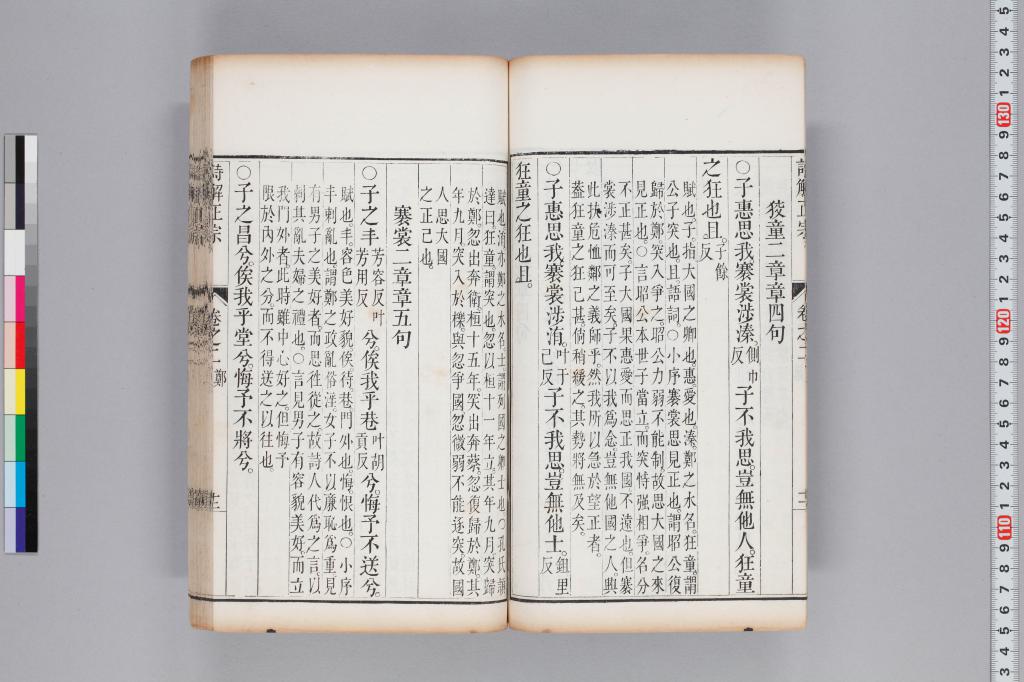 狡童二章章四句
○子惠思我褰裳涉溱側巾反子不我思豈無他人狂童
之狂也且子餘反
賦也子指大國之卿也惠愛也溱鄭之水名狂童謂
公子突也且語詞○小序褰裳思見正也謂昭公復
歸於鄭突入爭之昭公力弱不能制故思大國之來
見正也○言昭公本世子當立而突恃强相爭名分
不正甚矣子大國果惠愛而思正我國不遠也但褰
裳涉溱而可至矣子不以我爲念豈無他國之人與
此扶危恤鄭之義師乎然我所以急於望正者
葢狂童之狂已甚倘稍緩之其勢將無及矣
○子惠思我褰裳涉洧叶于己反子不我思豈無他士鉏里反
狂童之狂也且
賦也洧亦鄭之水名士謂列國之卿士也○孔氏穎
達曰狂童謂突也忽以桓十一年立其年九月突歸
於鄭忽出奔衛桓十五年突出奔蔡忽復歸於鄭其
年九月突入於櫟與忽爭國忽微弱不能逐突故國
人思大國
之正己也
褰裳二章章五句
○子之丰芳容反叶芳用反兮俟我乎巷叶胡貢反兮悔予不送兮
賦也丰容色美好貌俟待巷門外也悔恨也○小序
丰刺亂也謂鄭之政亂俗淫女子不以廉恥爲重見
有男子之美好者而思徃從之故詩人代爲之言以
刺其亂夫婦之禮也○言見男子有容貌美好而立
我門外者此時雖中心好之但悔予
限於內外之分而不得送之以往也
○子之昌兮俟我乎堂兮悔予不將兮
詩解正宗
卷之二 鄭
十二